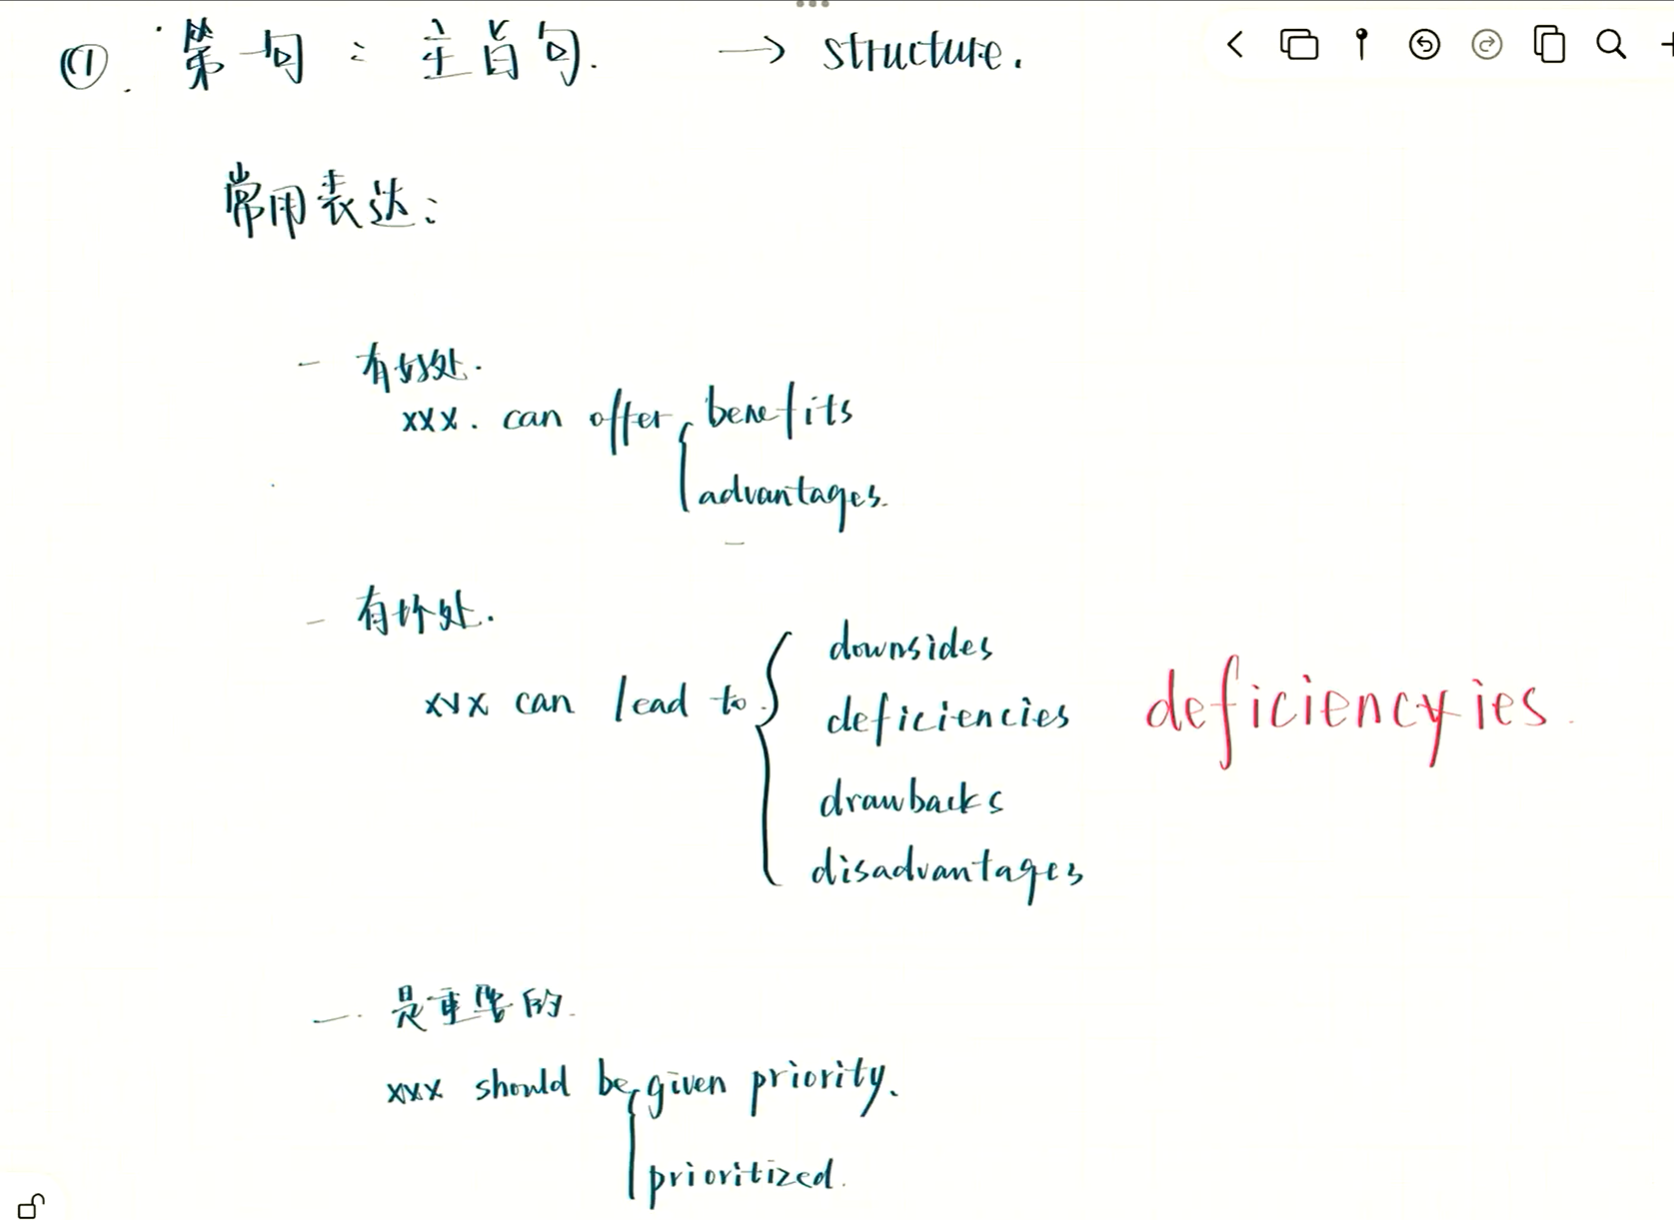 ① 第一句：主旨句. → structure.
常用表达：
- 有好处.
xxx. can offer benefits
advantages.
- 有坏处.
downsides
xxx can lead to. deficiencies deficiencyies.
drawbacks
disadvantages
- 是重要的.
xxx should be given priority.
prioritized.